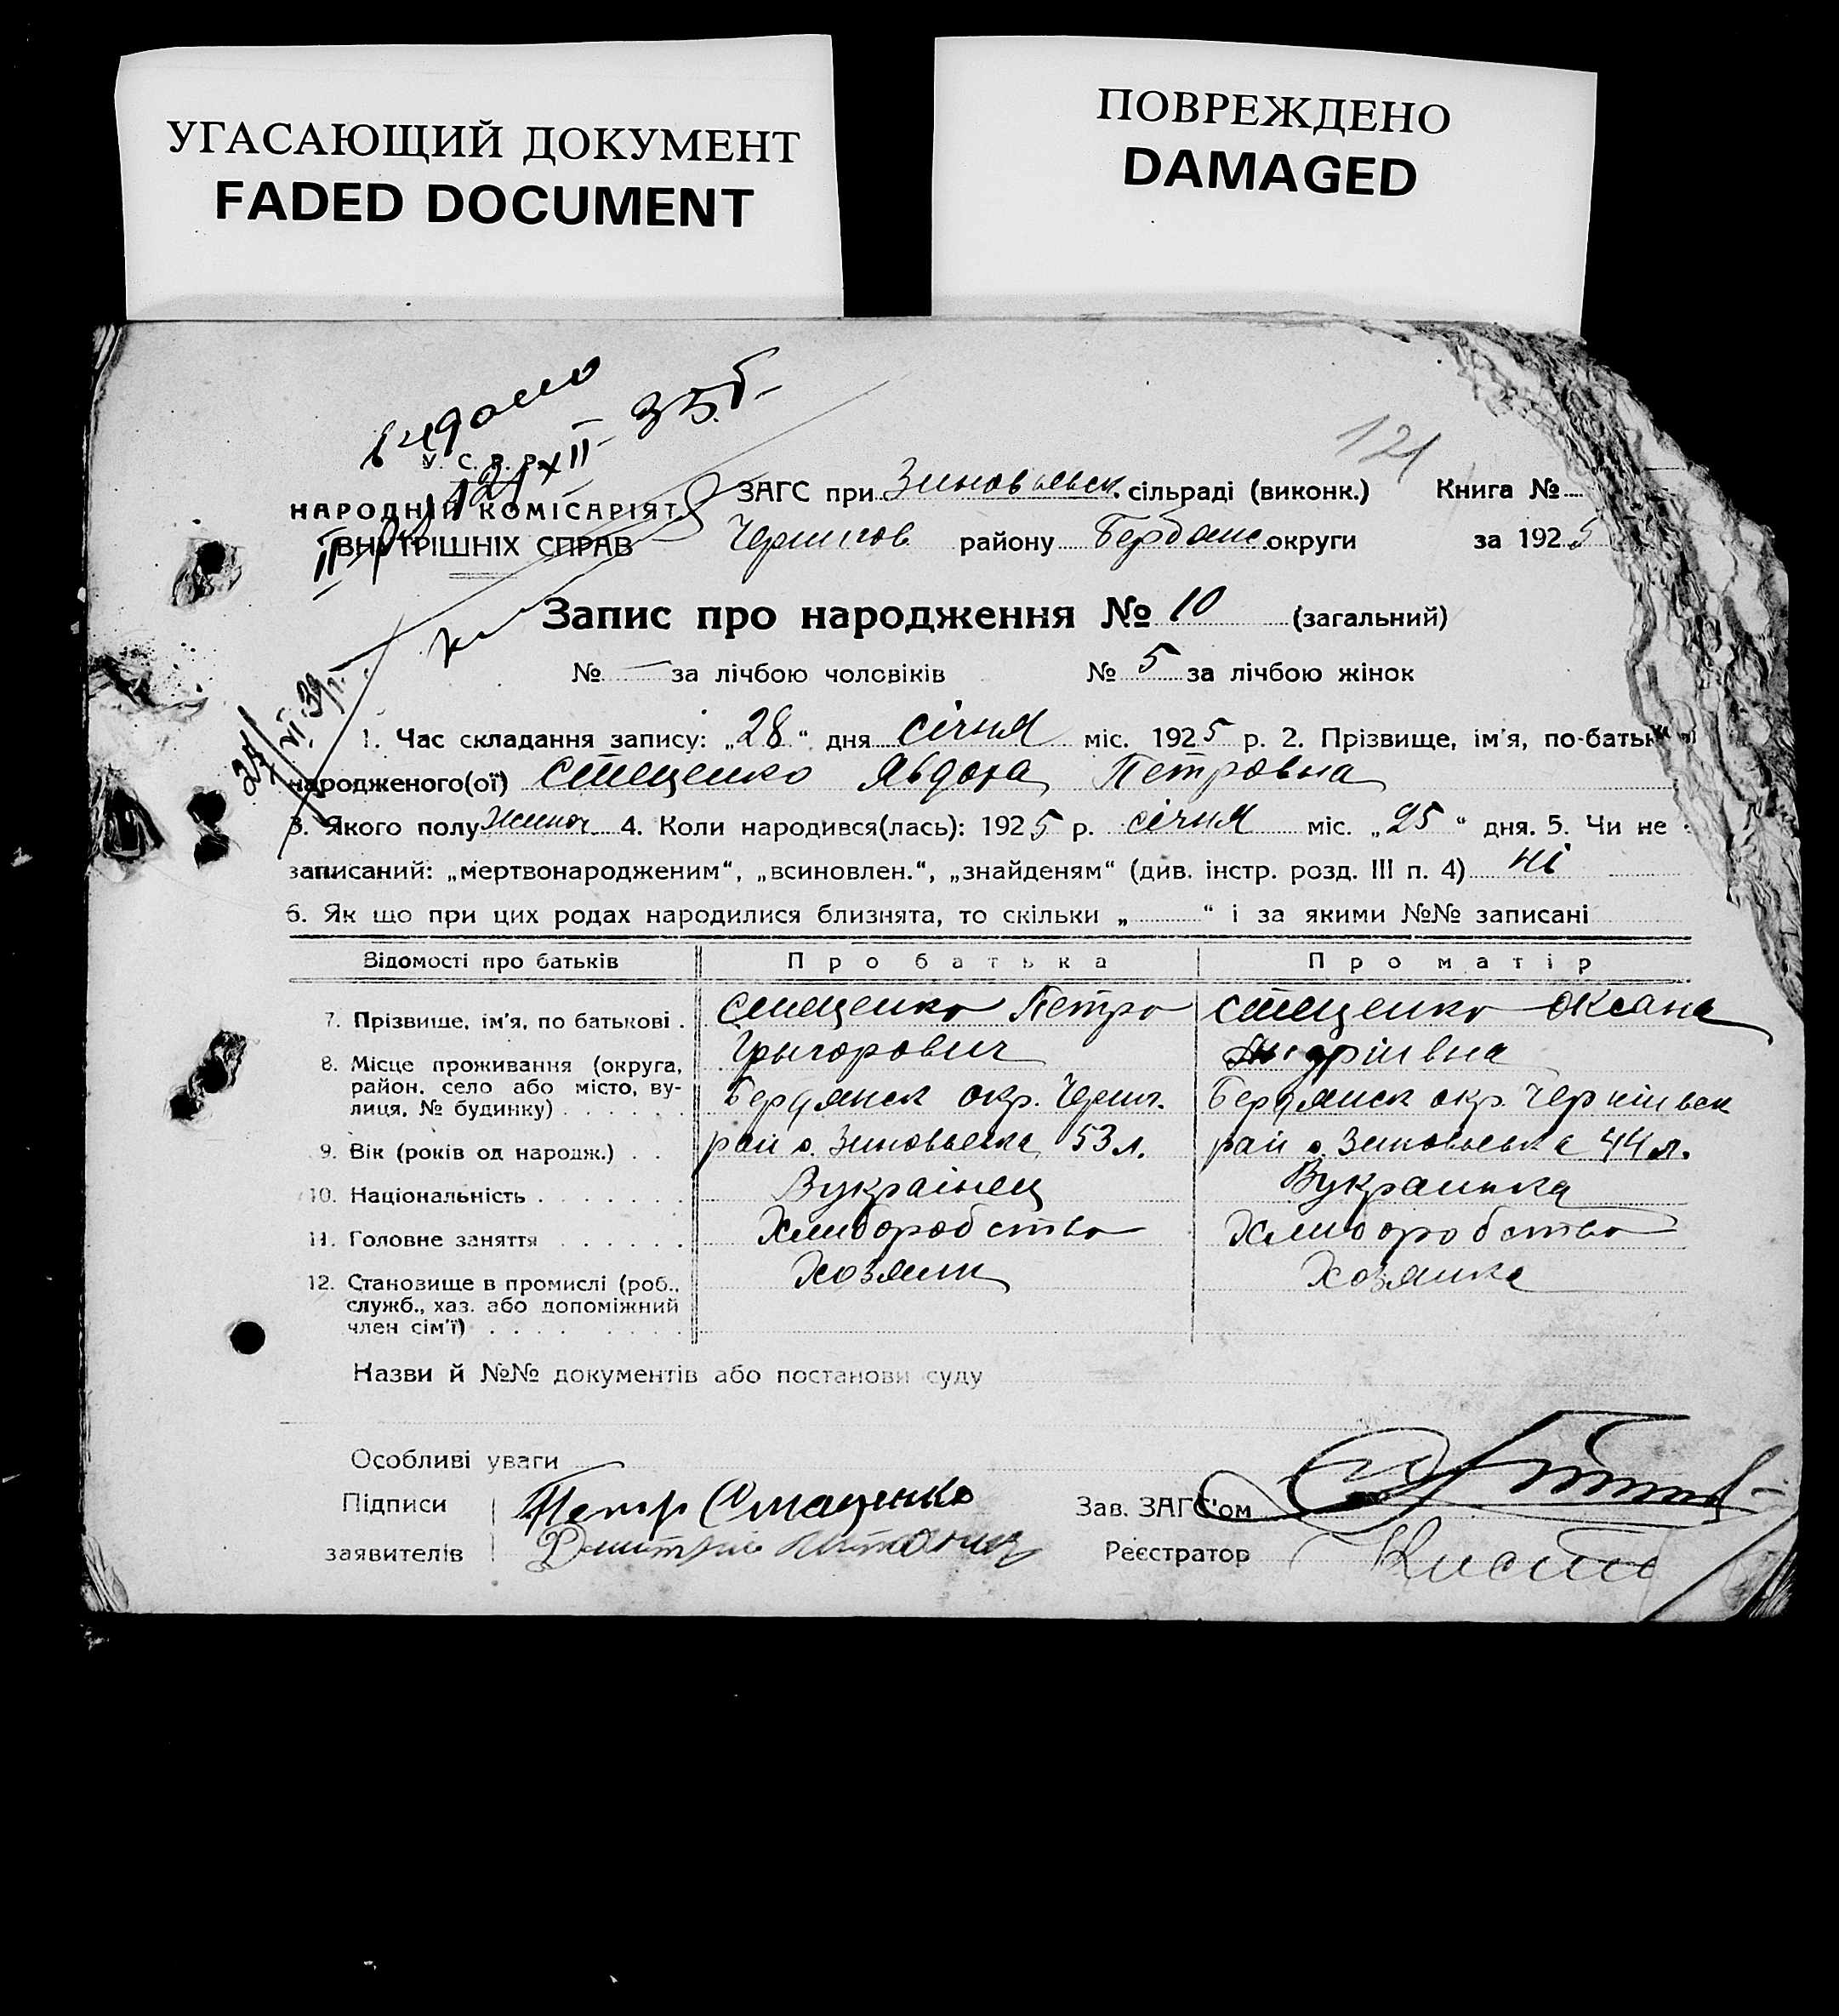 УГАСАЮЩИЙ ДОКУМЕНТ
FADED DOCUMENT
ПОВРЕЖДЕНО
DAMAGED
видано
XII 35
121
У. С. Р. Р.
НАРОДНІЙ КОМІСАРІЯТ
ВНУТРІШНІХ СПРАВ
ЗАГС при Зиновьевск. сільраді (виконк.) Книга №
Чернигов району Бердянс. округи за 1925
Запис про народження № 10 (загальний)
№ — за лічбою чоловіків № 5 за лічбою жінок
1. Час складання запису: „28“ дня січня міс. 1925 р. 2. Прізвище, ім'я, по-батьк
народженого(ої) Стеценко Явдоха Петровна
3. Якого полу жиноч. 4. Коли народився(лась): 1925 р. січня міс. „25“ дня. 5. Чи не
записаний: „мертвонародженим“, „всиновлен.“, „знайденям“ (див. інстр. розд. III п. 4) ні
6. Як що при цих родах народилися близнята, то скільки „ “ і за якими №№ записані
Відомості про батьків Про батька Про матір
7. Прізвище, ім'я, по батькові . Стеценко Петро Стеценко Оксана
Грыгорович Андріівна
8. Місце проживання (округа, район, село або місто, вулиця, № будинку) Бердянск окр. Черниг. Бердянск окр.
9. Вік (років од народж.) рай с. Зиновьевка 53 л. рай с. Зиновьевка 44 л.
10. Національність Вукраінец Вукраинка
11. Головне заняття Хлиборобство Хлиборобство
12. Становище в промислі (роб., служб., хаз. або допоміжний член сім'ї) Хозяин Хозяика
Назви й №№ документів або постанови суду
Особливі уваги
Підписи Петр Стаценко Зав. ЗАГС'ом
заявителів Дмитрий Реєстратор